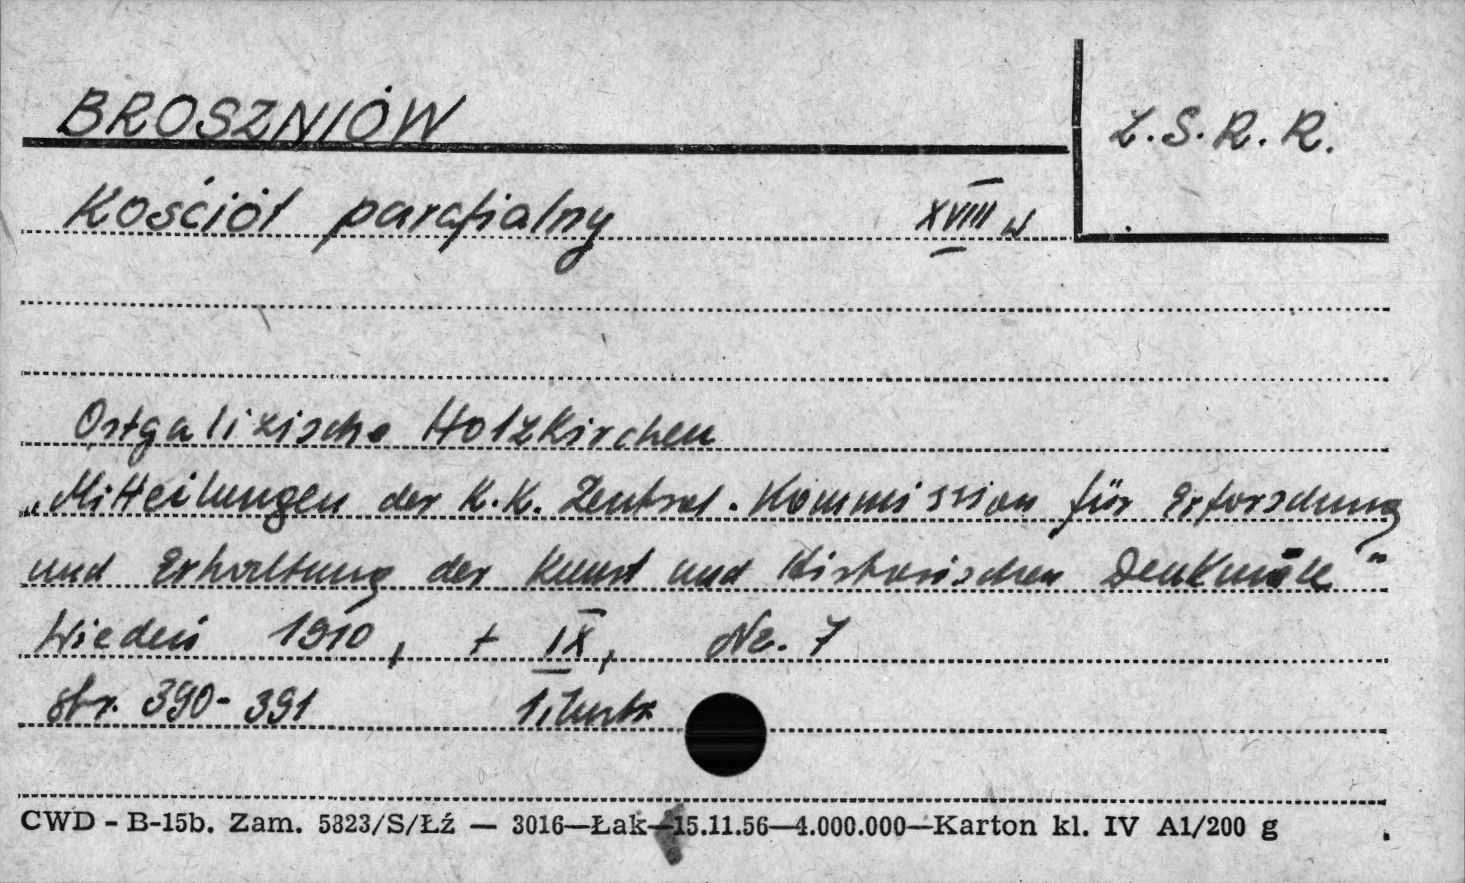 BROSZNIÓW
Z.S.R.R.
Kościół parafialny XVIII w
Ostgalizische Holzkirchen
„Mitteilungen der K.K. Zentral. Kommission für Erforschung
und Erhaltung der Kunst und Historischen Denkmäle"
Wiedeń 1910, t IX, Nr. 7
str. 390-391 1 ilustr
CWD - B-15b. Zam. 5823/S/Łź — 3016—Łak—15.11.56—4.000.000—Karton kl. IV A1/200 g